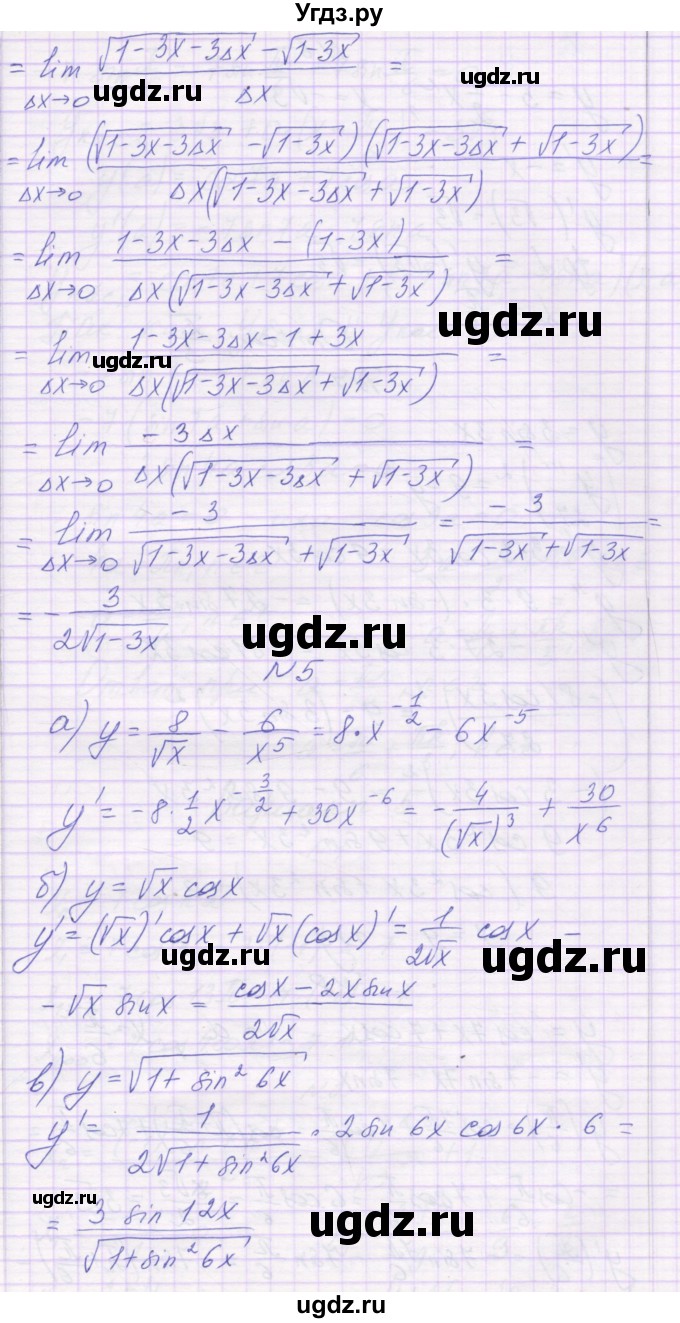 Угдз.ру
= lim (√(1-3x-3Δx) - √(1-3x)) / Δx =
Δx→0
ugdz.ru
= lim ((√(1-3x-3Δx) - √(1-3x))(√(1-3x-3Δx) + √(1-3x))) / (Δx(√(1-3x-3Δx) + √(1-3x))) =
Δx→0
= lim (1-3x-3Δx - (1-3x)) / (Δx(√(1-3x-3Δx) + √(1-3x))) =
Δx→0
ugdz.ru
= lim (1-3x-3Δx-1+3x) / (Δx(√(1-3x-3Δx) + √(1-3x))) =
Δx→0
ugdz.ru
= lim (-3Δx) / (Δx(√(1-3x-3Δx) + √(1-3x))) =
Δx→0
= lim (-3) / (√(1-3x-3Δx) + √(1-3x)) = (-3) / (√(1-3x) + √(1-3x)) =
Δx→0
= - 3 / (2√(1-3x))
ugdz.ru
N5
а) y = 8/√x - 6/x⁵ = 8·x^(-1/2) - 6x⁻⁵
y' = -8·1/2 x^(-3/2) + 30x⁻⁶ = - 4/(√x)³ + 30/x⁶
б) y = √x·cosx
y' = (√x)'cosx + √x(cosx)' = 1/(2√x) cosx -
ugdz.ru
ugdz.ru
- √x sinx = (cosx - 2x sinx) / (2√x)
в) y = √(1+sin²6x)
y' = 1/(2√(1+sin²6x)) · 2sin6x cos6x · 6 =
ugdz.ru
= 3 sin12x / √(1+sin²6x)
ugdz.ru
ugdz.ru